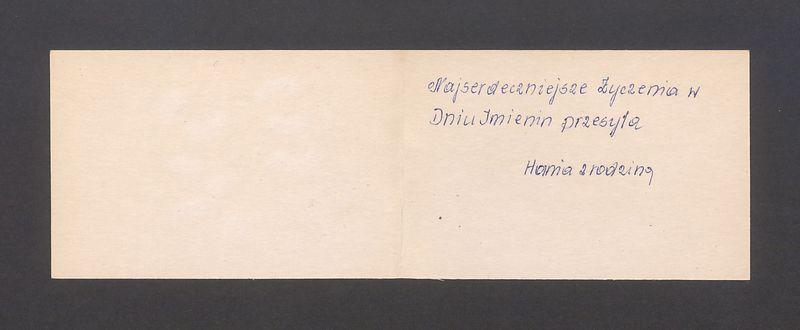 Najserdeczniejsze Życzenia w
Dniu Imienin przesyła
Hania z rodziną